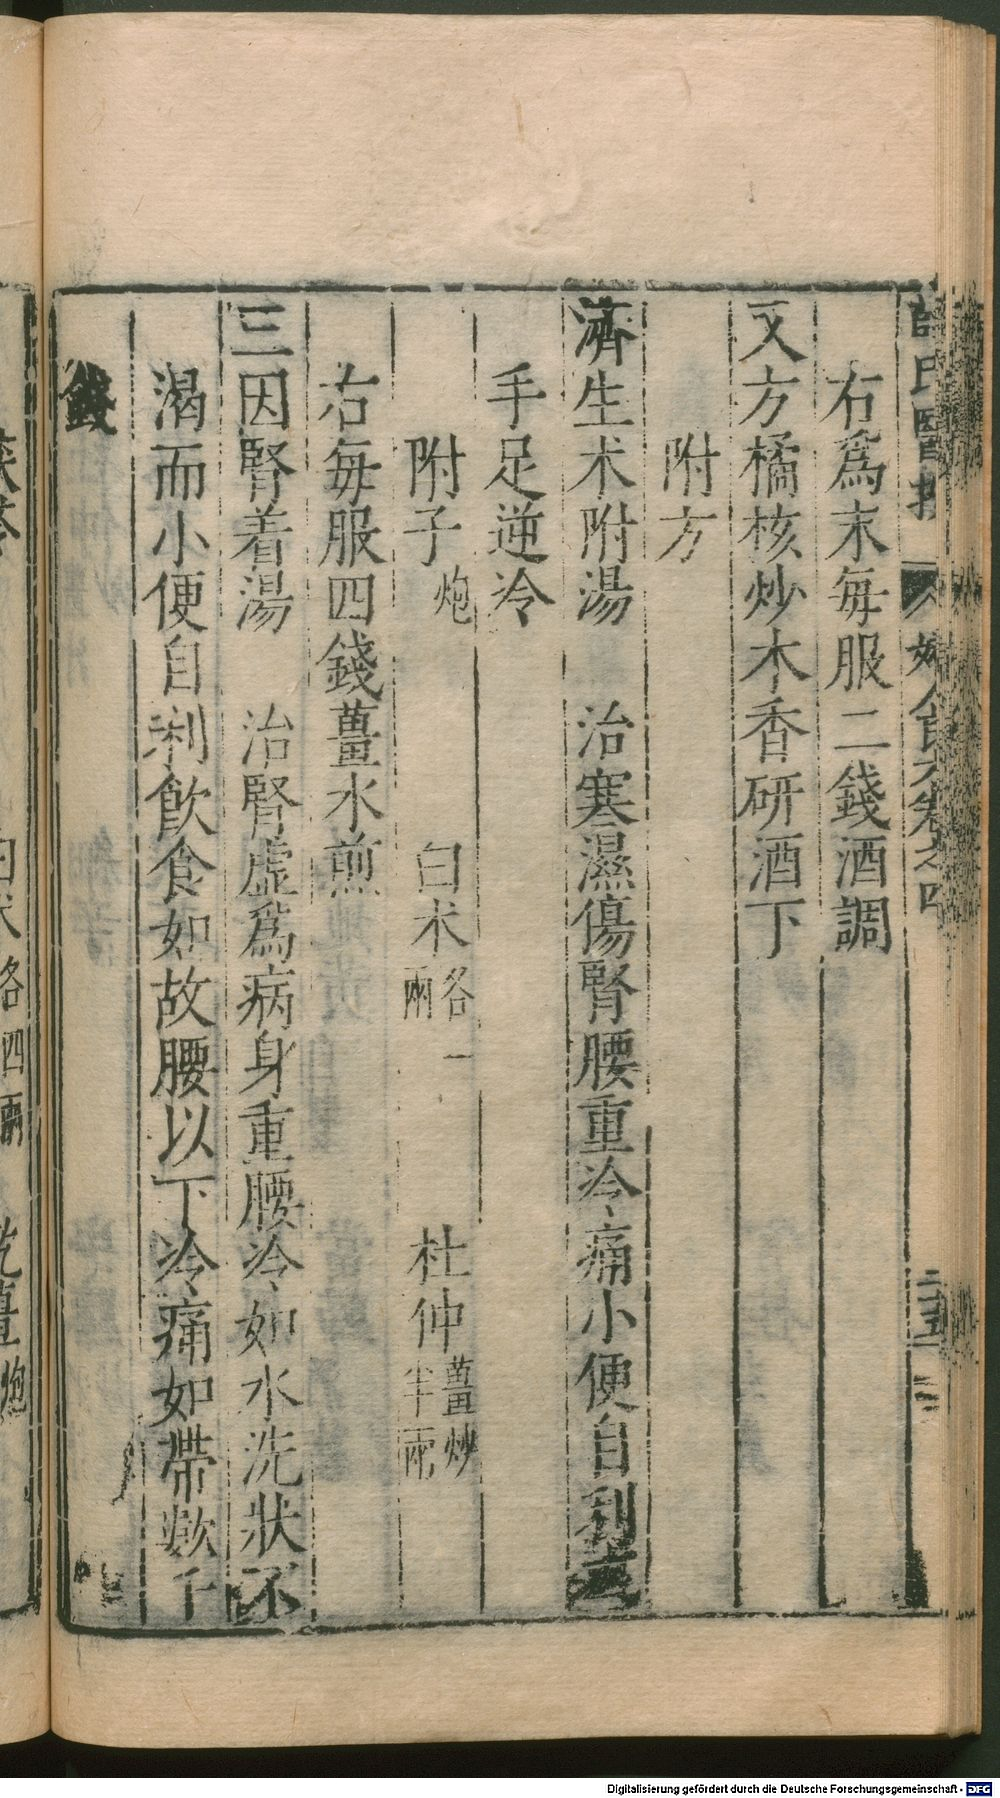 右爲末每服二錢酒調
又方橘核炒木香研酒下
附方
濟生术附湯　治寒濕傷腎腰重冷痛小便自利
手足逆冷
附子炮　白术各一兩　杜仲薑炒半兩
右每服四錢薑水煎
三因腎着湯　治腎虛爲病身重腰冷如水洗狀不
渴而小便自利飲食如故腰以下冷痛如帶數千
錢
白术各四兩　乾薑炮
Digitalisierung gefördert durch die Deutsche Forschungsgemeinschaft - DFG